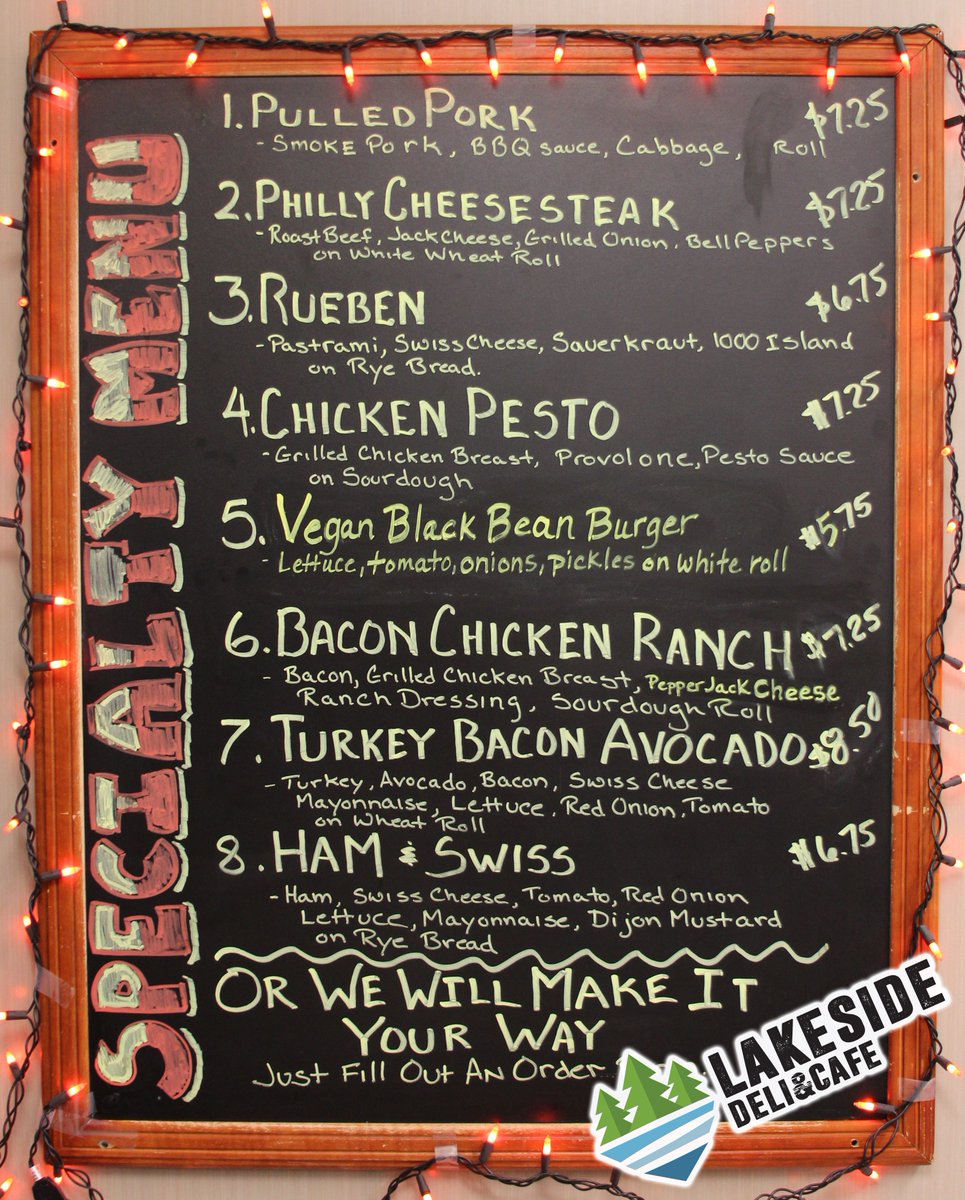 SPECIALITY MENU
1. PULLED PORK $7.25
- Smoke Pork, BBQ sauce, Cabbage, Roll
2. PHILLY CHEESESTEAK $7.25
- Roast Beef, Jack Cheese, Grilled Onion, Bell Peppers
on White Wheat Roll
3. RUEBEN $6.75
- Pastrami, Swiss Cheese, Sauerkraut, 1000 Island
on Rye Bread.
4. CHICKEN PESTO $7.25
- Grilled Chicken Breast, Provolone, Pesto Sauce
on Sourdough
5. Vegan Black Bean Burger $5.75
- Lettuce, tomato, onions, pickles on white roll
6. BACON CHICKEN RANCH $7.25
- Bacon, Grilled Chicken Breast, Pepper Jack Cheese
Ranch Dressing, Sourdough Roll
7. TURKEY BACON AVOCADO $8.50
- Turkey, Avocado, Bacon, Swiss Cheese
Mayonnaise, Lettuce, Red Onion, Tomato
on Wheat Roll
8. HAM & SWISS $6.75
- Ham, Swiss Cheese, Tomato, Red Onion
Lettuce, Mayonnaise, Dijon Mustard
on Rye Bread
OR WE WILL MAKE IT
YOUR WAY
Just Fill Out An Order
LAKESIDE
DELI & CAFE